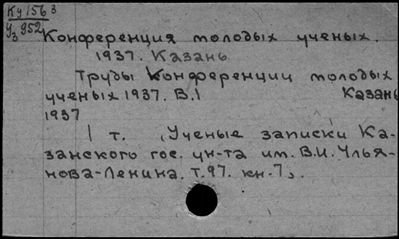 Ку 156 3
У3 952
Конференция молодых ученых.
1937. Казань
Труды Конференции молодых
ученых 1937. В.1 Казань
1937
1 т. (Ученые записки Ка-
занского гос. ун-та им. В.И. Улья-
нова-Ленина. т.97. кн-7).